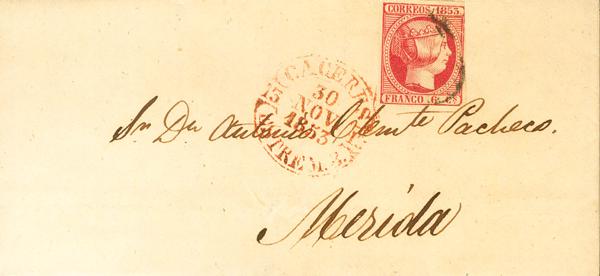 CORREOS 1853
FRANCO 6 CS
CACERES
30
NOV
1853
EXTREM. B.
Sr Dn Antonio Clemte Pacheco.
Merida